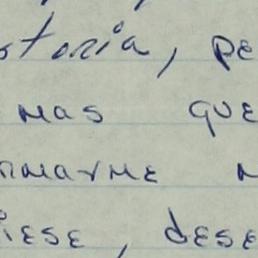 storia, pe
mas que
nmarme n
iese, dese